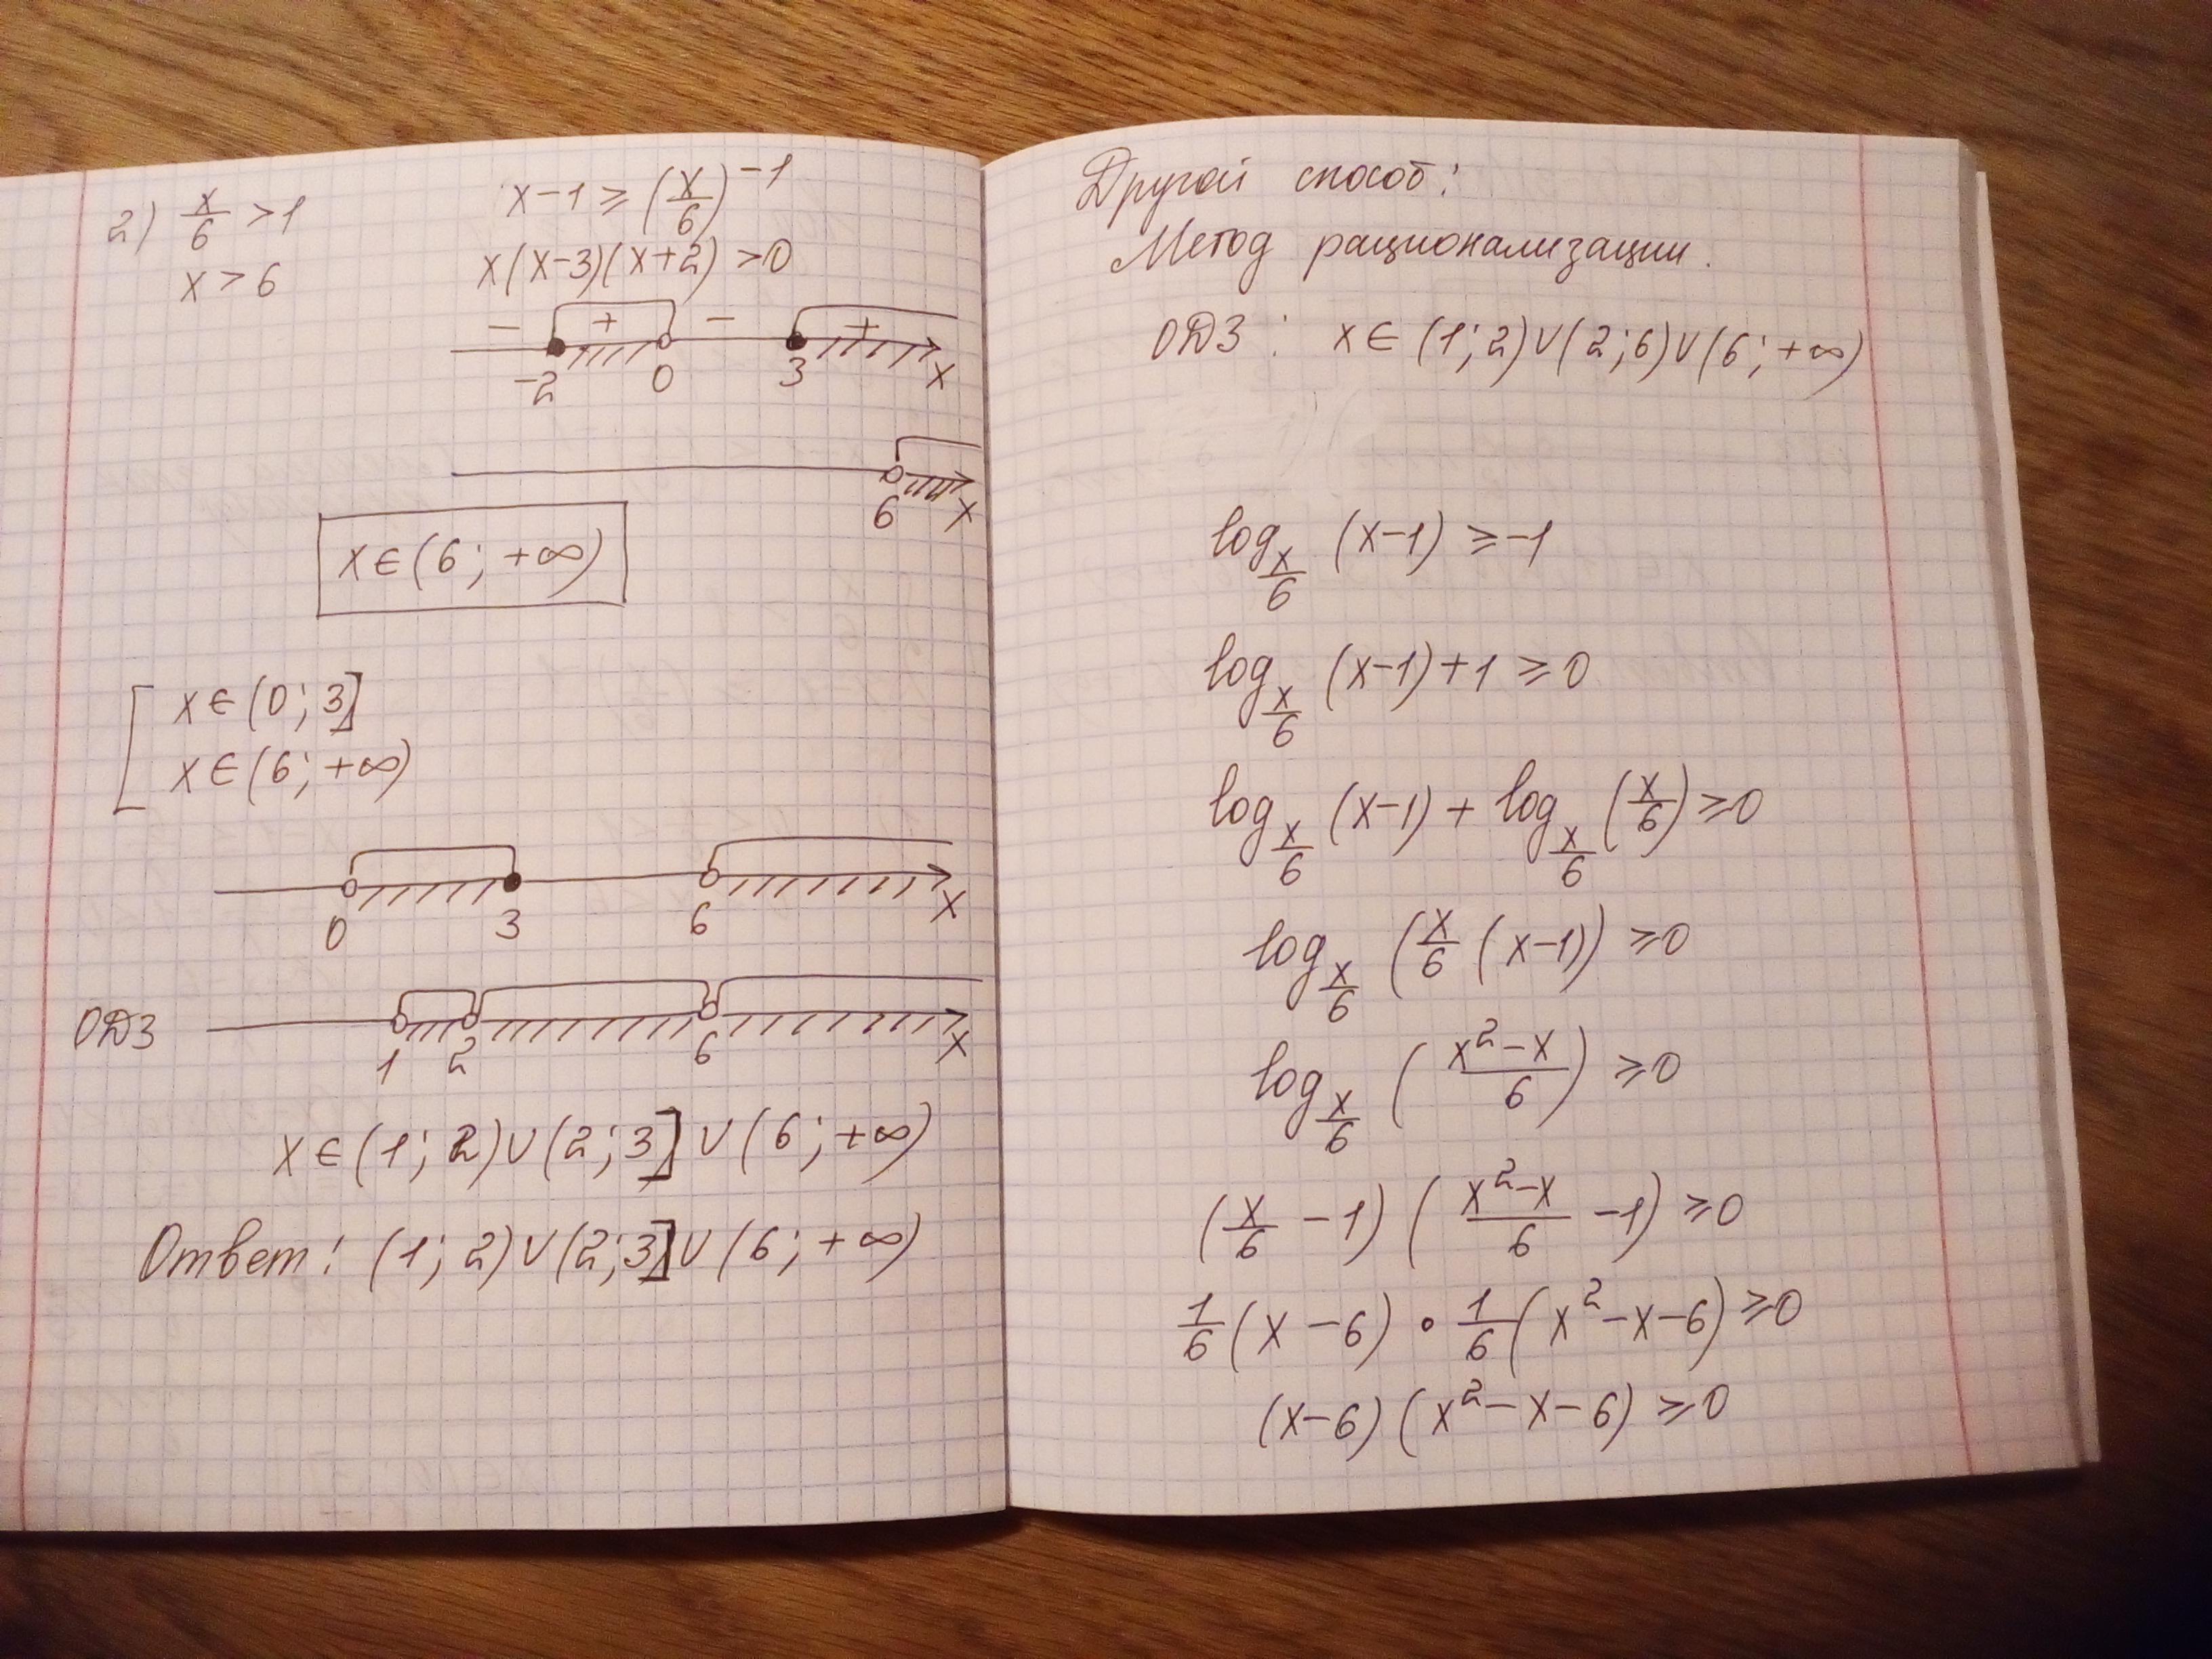 2) x/6 > 1
x > 6
x-1 ≥ (x/6)^-1
x(x-3)(x+2) > 0
- + - +
-2 0 3 x
6 x
x ∈ (6; +∞)
x ∈ (0; 3]
x ∈ (6; +∞)
0 3 6 x
ОДЗ 1 2 6 x
x ∈ (1; 2) ∪ (2; 3] ∪ (6; +∞)
Ответ: (1; 2) ∪ (2; 3] ∪ (6; +∞)
Другой способ:
Метод рационализации.
ОДЗ: x ∈ (1; 2) ∪ (2; 6) ∪ (6; +∞)
log_x/6 (x-1) ≥ -1
log_x/6 (x-1) + 1 ≥ 0
log_x/6 (x-1) + log_x/6 (x/6) ≥ 0
log_x/6 (x/6 (x-1)) ≥ 0
log_x/6 ((x²-x)/6) ≥ 0
(x/6 - 1) ((x²-x)/6 - 1) ≥ 0
1/6 (x-6) • 1/6 (x²-x-6) ≥ 0
(x-6) (x²-x-6) ≥ 0